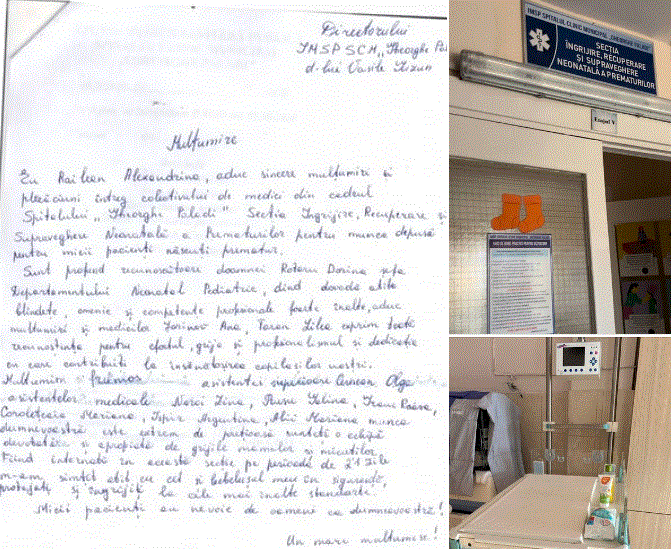 Directorului
IMSP SCM „Gheorghe Pal
d-lui Vasile
Mulțumire
Eu Railean Alexandrina, aduc sincere mulțumiri și
plecăciuni întreg colectivului de medici din cadrul
Spitalului „Gheorghe Paladi" Secția Îngrijire, Recuperare și
Supraveghere Neonatală a Prematurilor pentru munca depusă
pentru micii pacienți născuți prematur.
Sunt profund recunoscătoare doamnei Rotaru Dorina șefa
Departamentului Neonatal Pediatric, dînd dovadă atîta
blîndețe, omenie și competențe profesionale foarte înalte, aduc
mulțumiri și medicilor Ana, Lilia exprim toată
recunoștința pentru efortul, grija și profesionalismul și dedicație
cu care contribuiți la însănătoșirea copilașilor noștri.
Mulțumim frumos asistentei superioare Olga
asistentelor medicale Zina, Rusu Felina,
Mariana, Argentina, Mariana munca
dumneavoastră este extrem de prețioasă sunteți o echipă
devotată și apropiată de grijile mamelor și micuților.
Fiind internată în această secție pe perioadă de 21 zile
m-am simțit atît eu cît și bebelușul meu în siguranță,
protejați și îngrijiți la cele mai înalte standarte.
Micii pacienți au nevoie de oameni ca dumneavoastră!
Un mare mulțumesc!
IMSP SPITALUL CLINIC MUNICIPAL „GHEORGHE PALADI"
SECȚIA
ÎNGRIJIRE, RECUPERARE
ȘI SUPRAVEGHERE
NEONATALĂ A PREMATURILOR
Etajul V